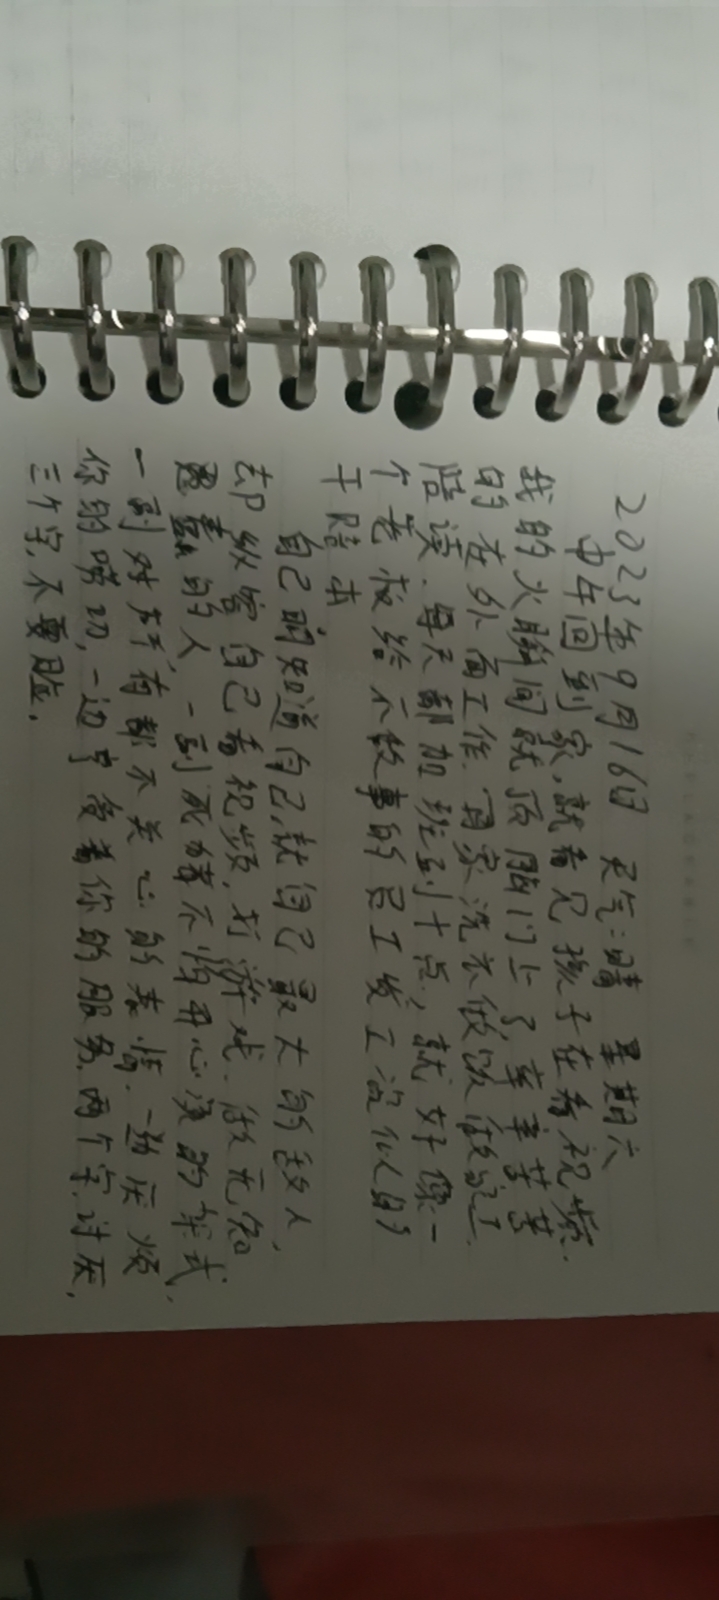 2023年9月16日 天气:晴 星期六
中午回到家,就看见孩子在看视频.
我的火瞬间就顶脑门上了,辛辛苦苦
的在外面工作.回家洗衣做饭做家工.
陪读.每天都加班到十点,就好像一
个老板给不做事的员工发工资似的
干赔本
自己明知道自己就自己最大的敌人,
却 放管自己看视频.打游戏.做无知
愚蠢的人 一副成绩不怕开心没的样式,
一副对所有都不关心的表情.一边厌烦
你的唠叨,一边享受着你的服务.两个字.讨厌,
三个字.不要脸.